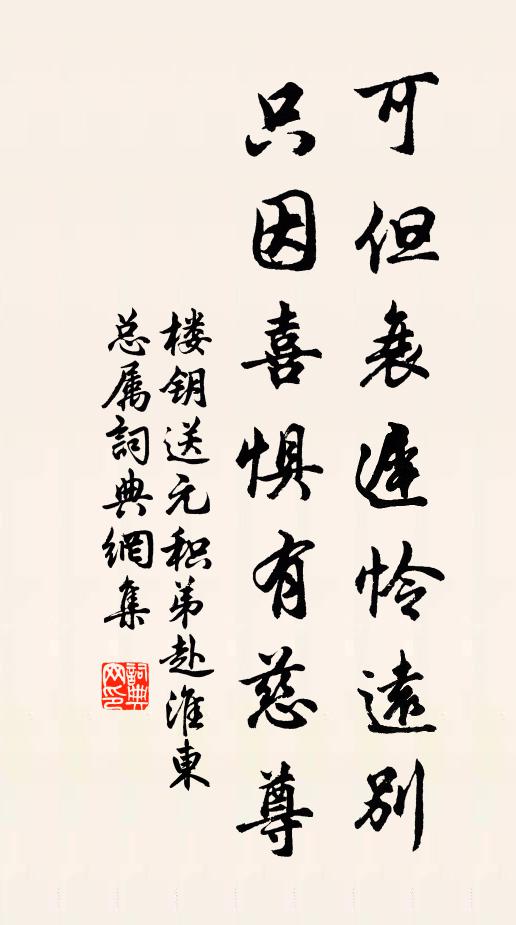 可但衰遲怜遠别
只因喜惧有慈尊
楼钥送元积弟赴淮東
总属詞典網集
詞典网印